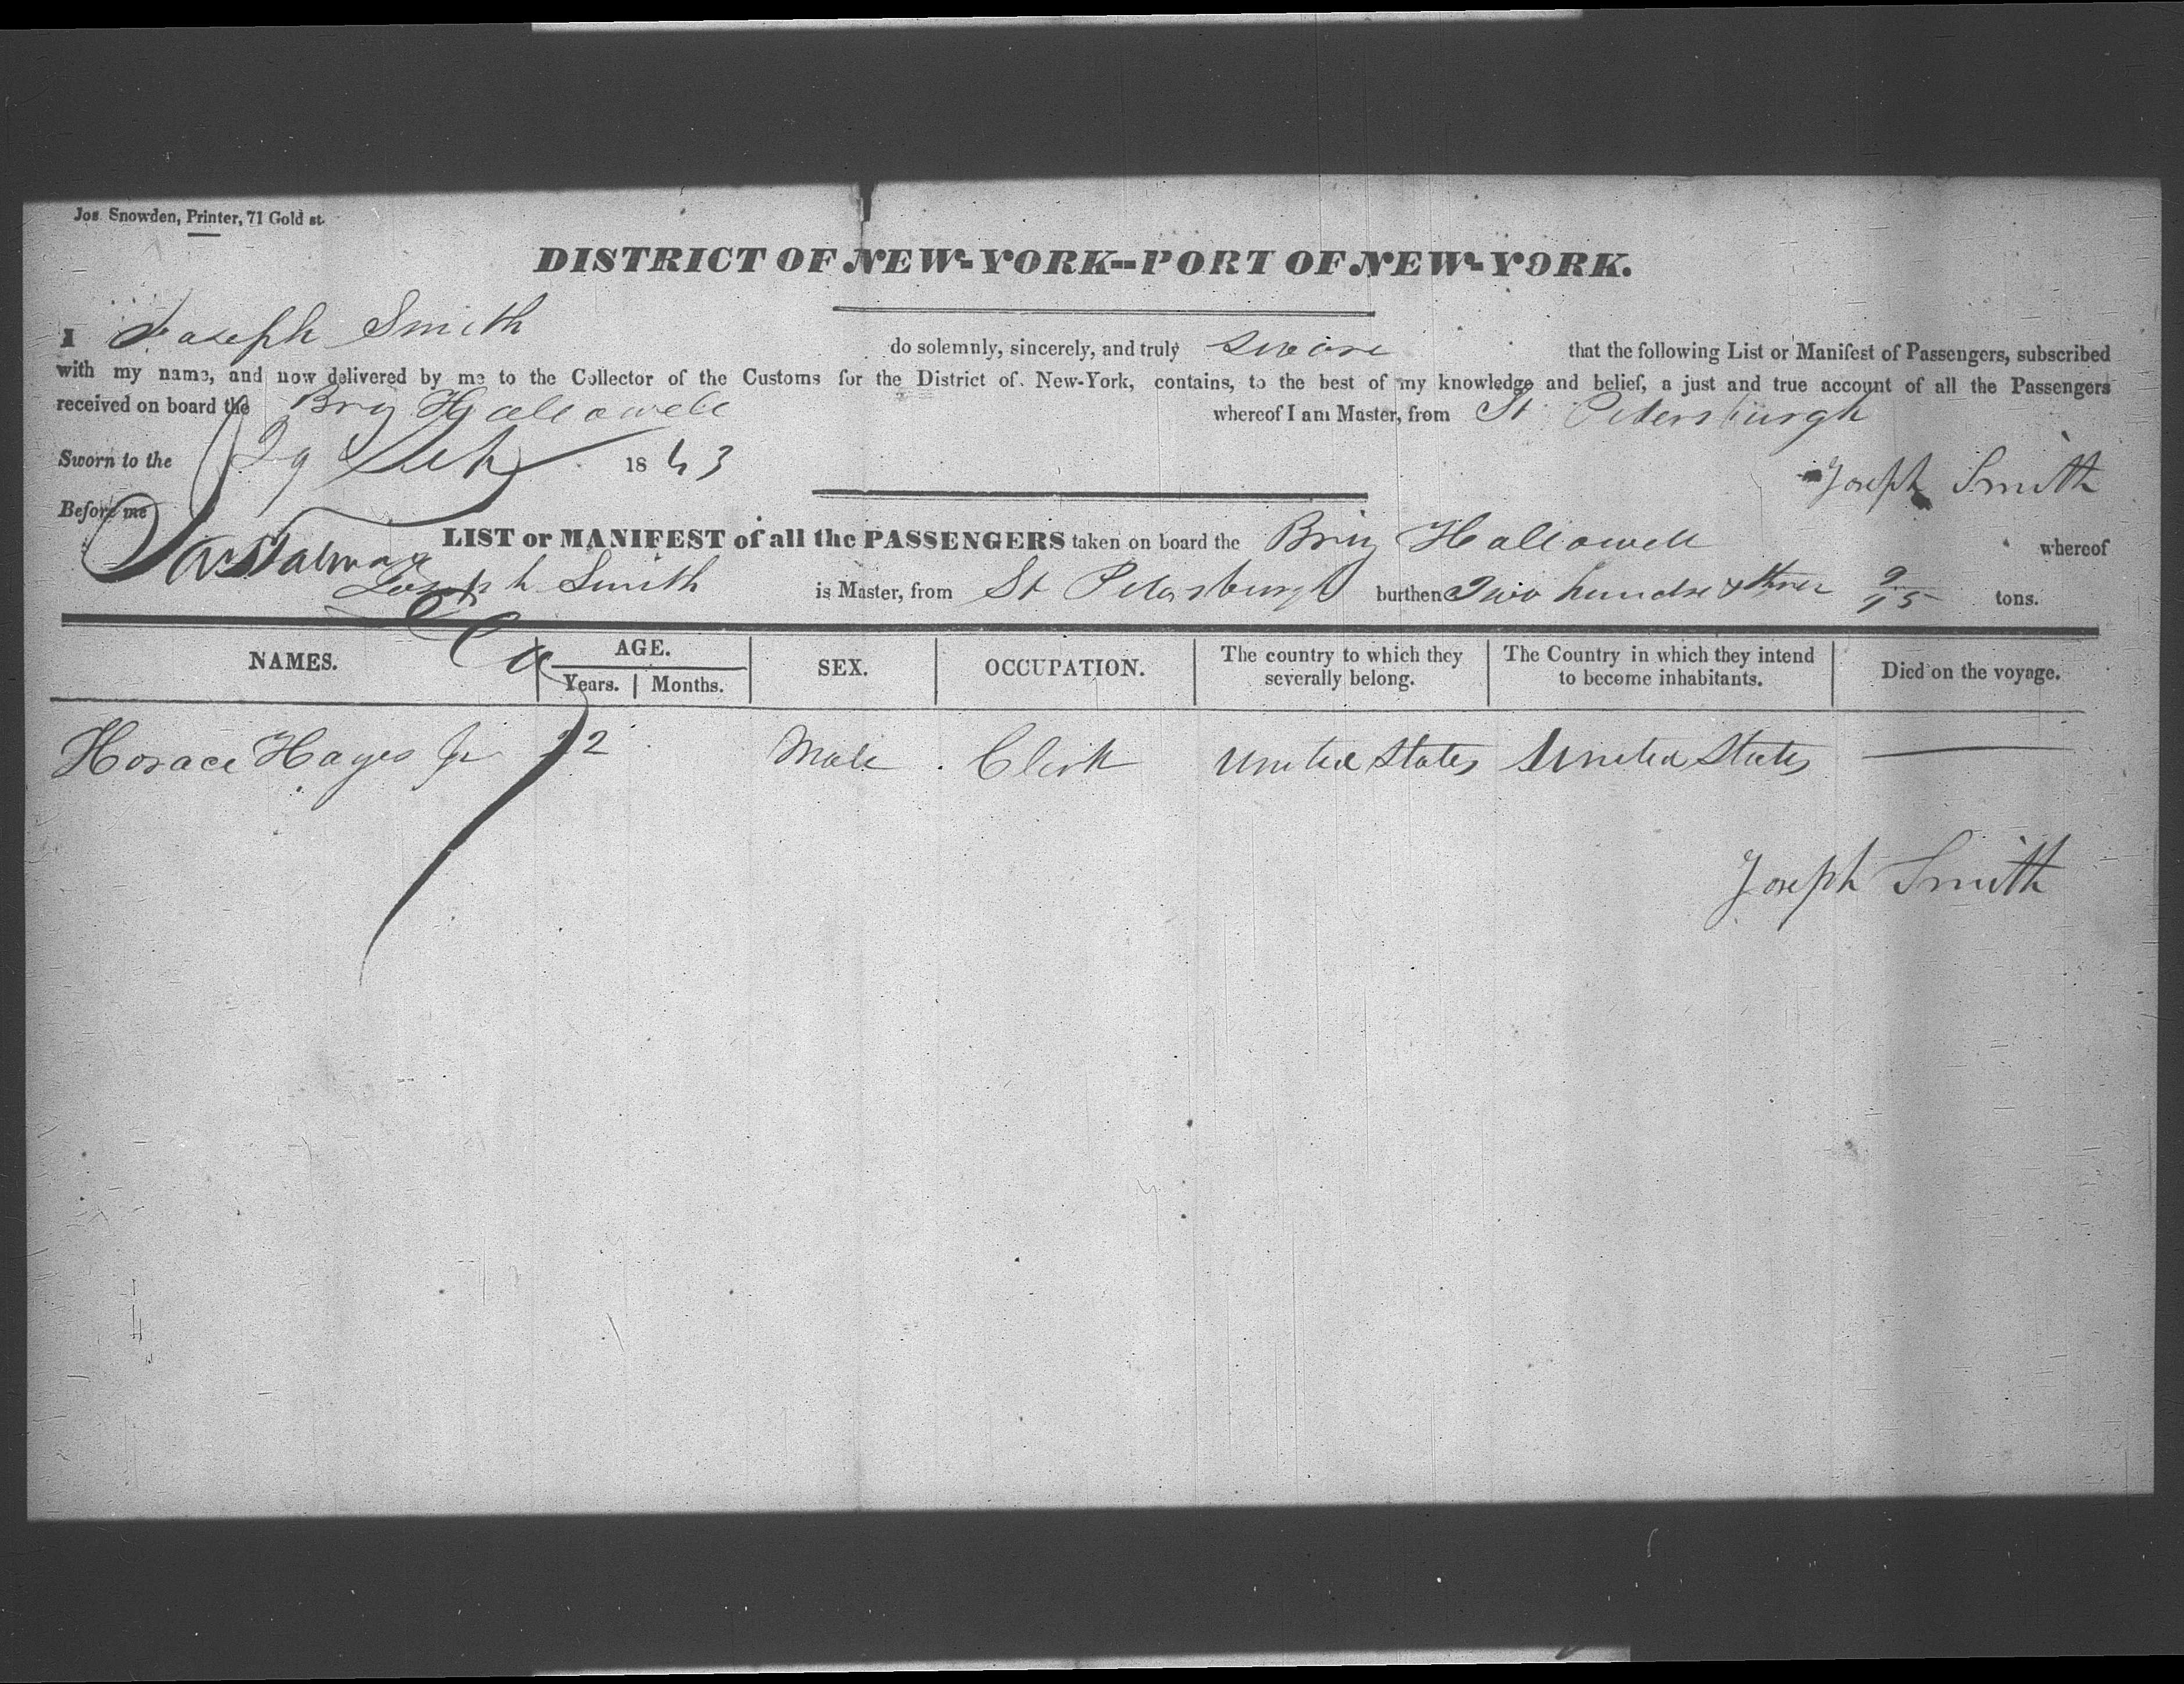 Jos. Snowden, Printer, 71 Gold st.
DISTRICT OF NEW-YORK--PORT OF NEW-YORK.
I Joseph Smith do solemnly, sincerely, and truly sware that the following List or Manifest of Passengers, subscribed
with my name, and now delivered by me to the Collector of the Customs for the District of New-York, contains, to the best of my knowledge and belief, a just and true account of all the Passengers
received on board the Brig Hallowell whereof I am Master, from St Petersburgh
Sworn to the 29 1843
Joseph Smith
Before me
LIST or MANIFEST of all the PASSENGERS taken on board the Brig Hallowell whereof
Joseph Smith is Master, from St Petersburgh burthen Two hundre & three 9/95 tons.
NAMES. AGE. SEX. OCCUPATION. The country to which they severally belong. The Country in which they intend to become inhabitants. Died on the voyage.
Years. Months.
Horace Hayes Jr 22 Male Clerk United States United States
Joseph Smith